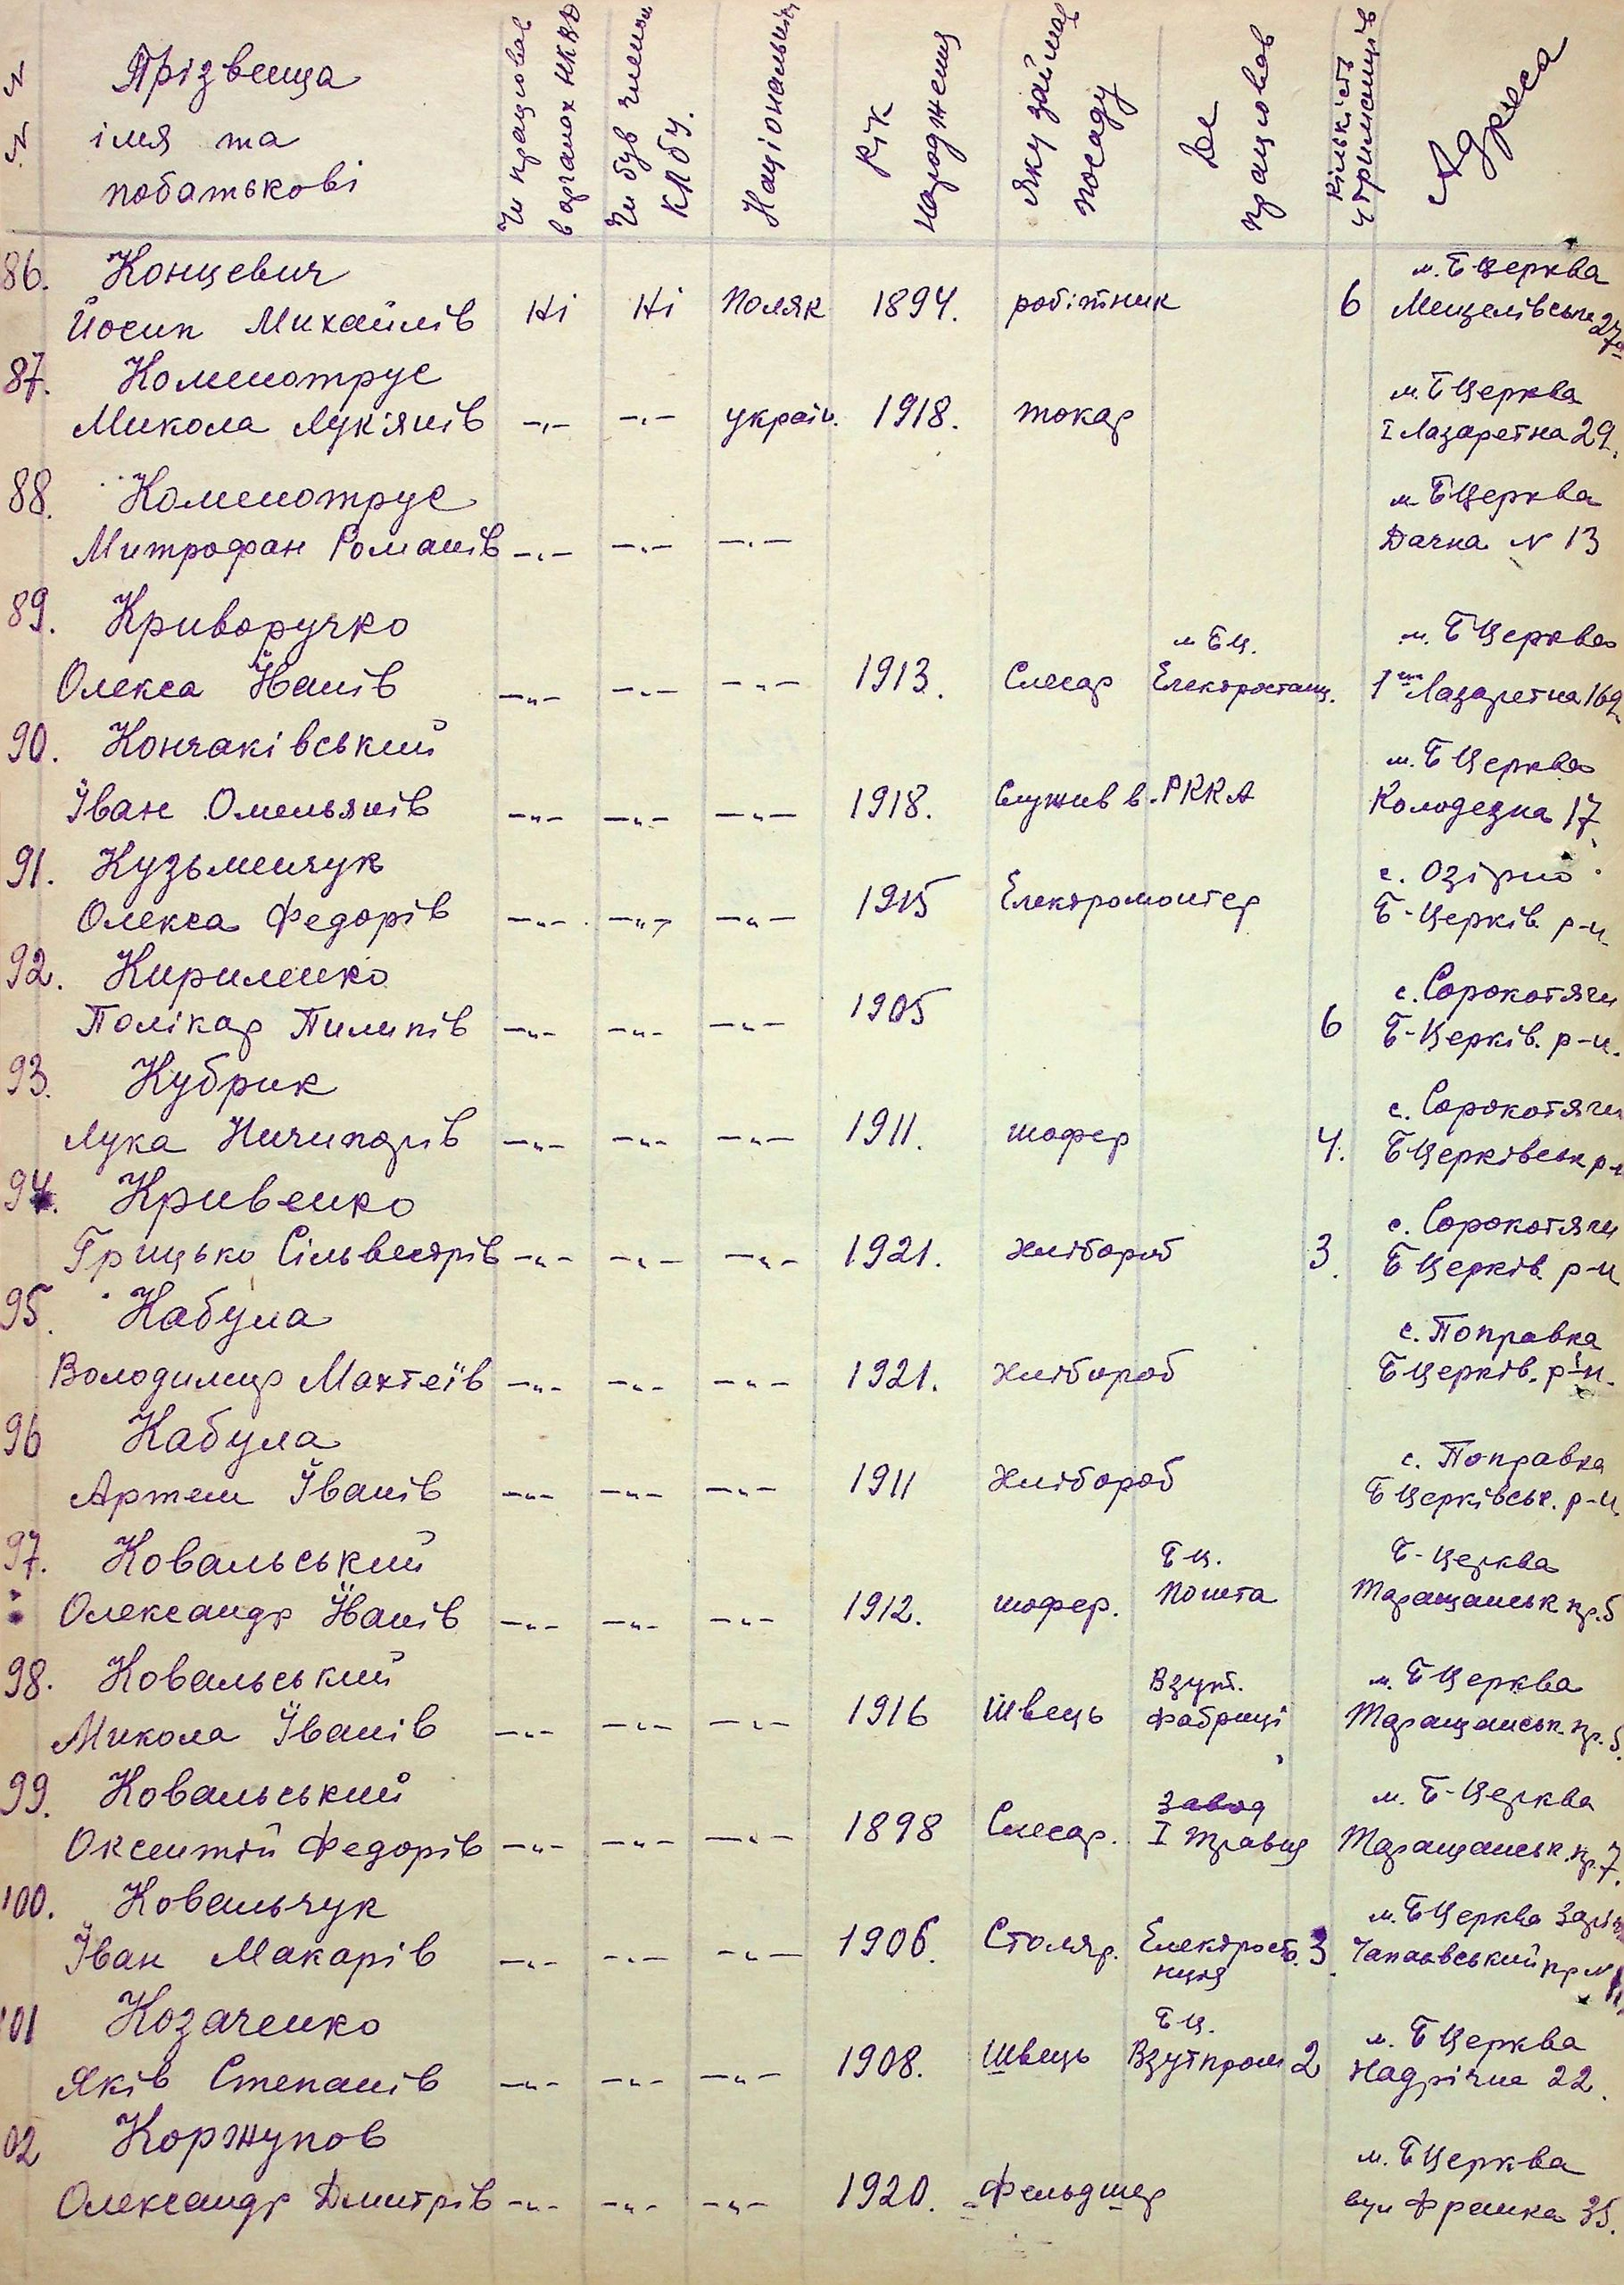 N N
Прізвеща
імя та
побатькові
Чи працював
в органах НКВД
Чи був членом
КПбУ.
Національність
Рік
народження
Яку займав
посаду
Де
працював
Кількість
утриманців
Адреса
86. Концевич м. Б-Церква
Йосип Михайлів Ні Ні Поляк 1894. робітник 6
87. Коменотрус м. Б Церква
Микола Лук'янів -„- -„- україн. 1918. токар І Лазаретна 29.
88. Коменотрус м. Б Церква
Митрофан Романів -„- -„- -„- Дачна N 13
89. Криворучко м Б Ц. м. Б Церква
Олекса Йванів -„- -„- -„- 1913. Слесар Електростанц. 1ша Лазаретна 169
90. Кончаківський м. Б Церква
Іван Омельянів -„- -„- -„- 1918. Служив в. РККА Колодезна 17
91. Кузьменчук с. Озірно
Олекса Федорів -„- -„- -„- 1915 Електромонтер Б-Церків. р-н
92. Кириленко с. Сорокотяги
Полікар Пилипів -„- -„- -„- 1905 6 Б-Церків. р-н.
93. Кубрик с. Сорокотяги
Лука Ничипорів -„- -„- -„- 1911. шофер 4. Б Церківськ р-н
94. Кривенко с. Сорокотяги
Грицько Сільвестрів -„- -„- -„- 1921. хлібороб 3. Б Церків. р-н
95. Кабула с. Поправка
Володимир Махтеїв -„- -„- -„- 1921. хлібороб Б Церків. р-н.
96 Кабула с. Поправка
Артем Іванів -„- -„- -„- 1911 хлібороб Б Церківськ. р-н
97. Ковальський Б Ц. Б-Церква
Олександр Йванів -„- -„- -„- 1912. шофер. Пошта Таращанськ пр. 5
98. Ковальський Взут. м. Б Церква
Микола Іванів -„- -„- -„- 1916 Швець фабриці Таращанськ. пр. 5.
99. Ковальський завод м. Б-Церква
Оксентій Федорів -„- -„- -„- 1898 Слесар. І травня Таращанськ. пр. 7.
100. Ковальчук м. Б Церква Заріч
Іван Макарів -„- -„- -„- 1906. Столяр. Електроста. 3. Чапаєвський пр N
нция
101 Козаченко Б Ц. м. Б Церква
Яків Степанів -„- -„- -„- 1908. Швець Взутпром 2 Надрічна 22.
02 Коржупов м. Б Церква
Олександр Дмитрів -„- -„- -„- 1920. Фельдшер вул Франка 35.